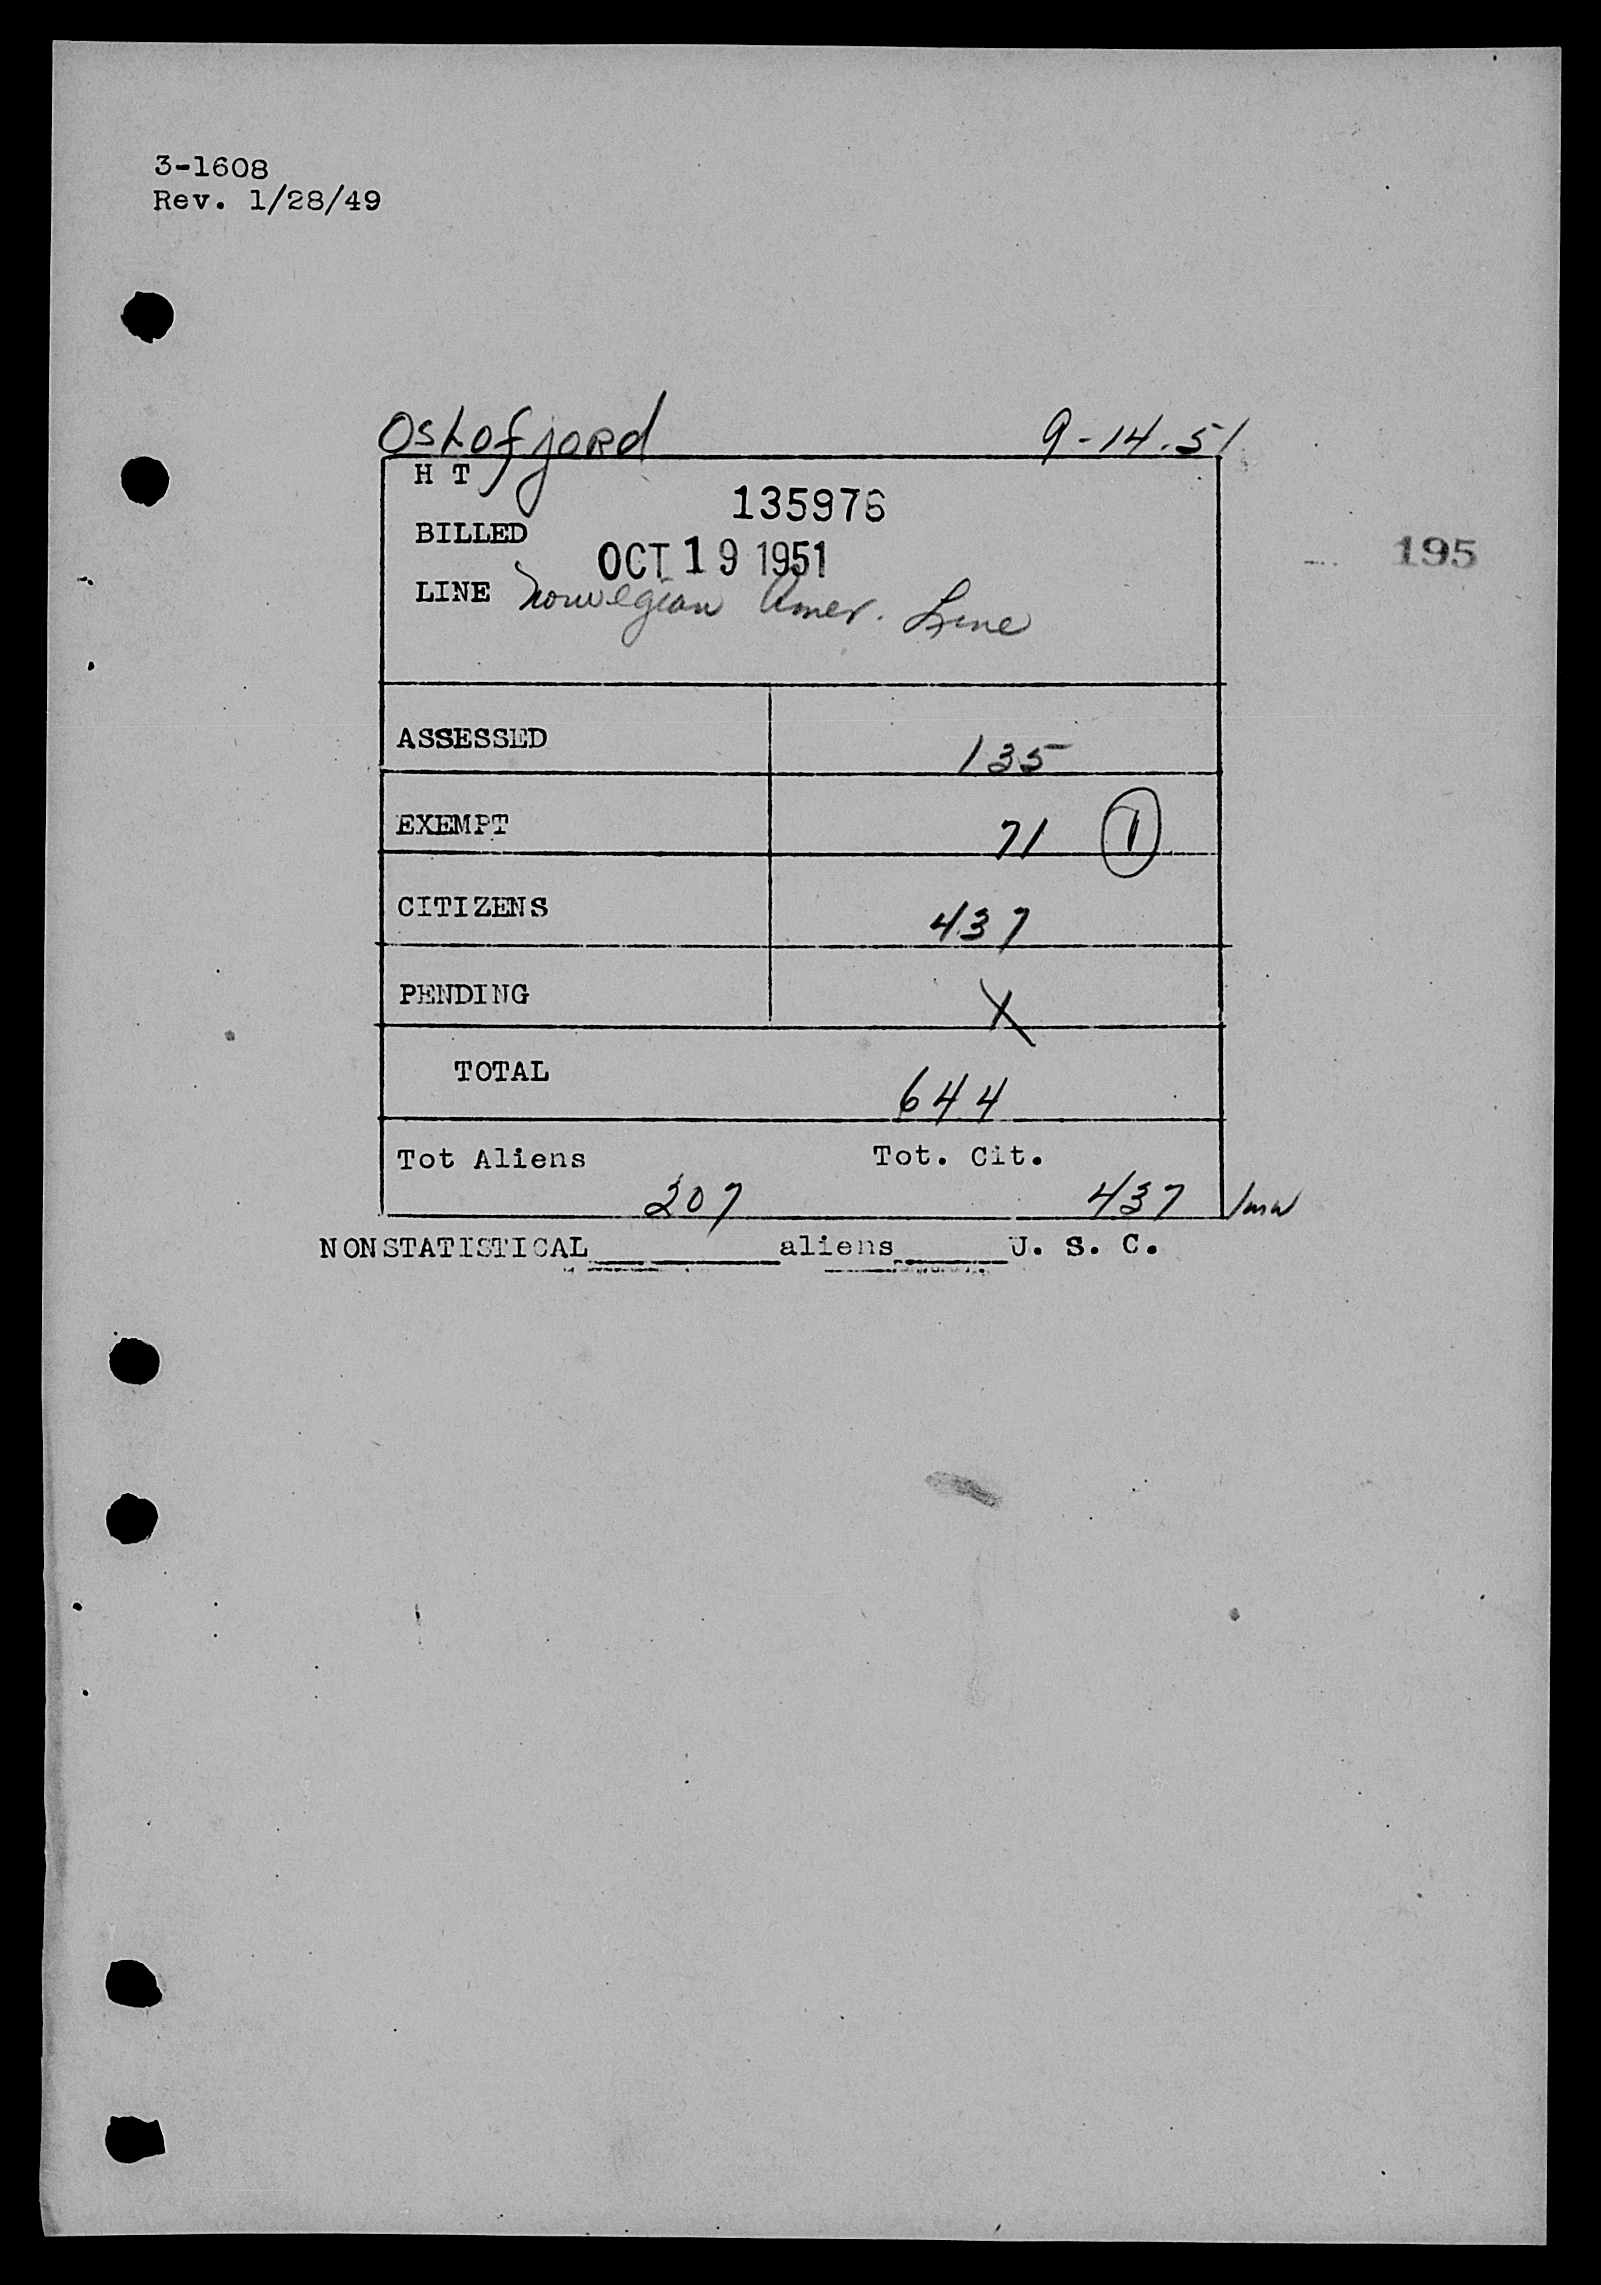 3-1608
Rev. 1/28/49
Oslofjord 9-14.51
H T
135976
BILLED
OCT 19 1951
195
LINE Norwegian Amer. Line
ASSESSED 135
EXEMPT 71 1
CITIZENS 437
PENDING X
TOTAL 644
Tot Aliens Tot. Cit.
207 437
NONSTATISTICAL______aliens______U. S. C.